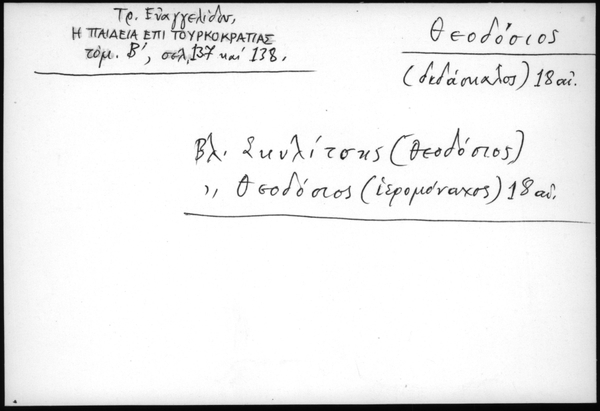 Τρ. Εὐαγγελίδου,
Η ΠΑΙΔΕΙΑ ΕΠΙ ΤΟΥΡΚΟΚΡΑΤΙΑΣ
τόμ. Β', σελ. 137 καί 138.
Θεοδόσιος
(διδάσκαλος) 18 αἰ.
Βλ. Σκυλίτσης (Θεοδόσιος)
,, Θεοδόσιος (ἱερομόναχος) 18 αἰ.